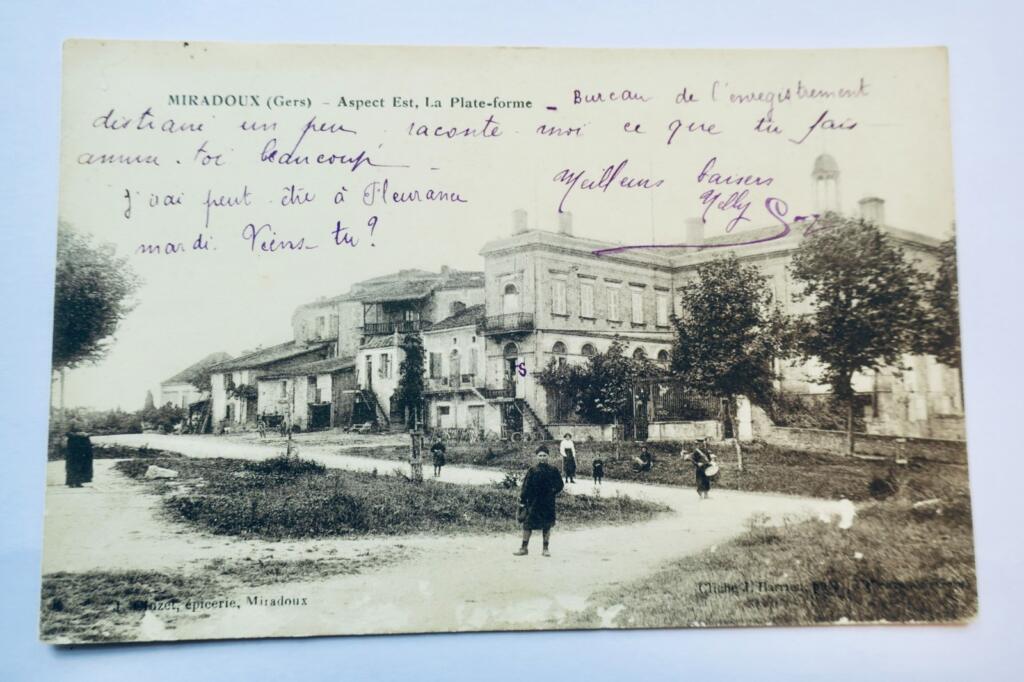 MIRADOUX (Gers) – Aspect Est, La Plate-forme – Bureau de l'enregistrement
distrais un peu raconte moi ce que tu fais
amuse-toi beaucoup
Meilleurs baisers
J'irai peut être à Fleurance
Nelly
mardi. Viens-tu?
S
épicerie, Miradoux
Cliché J.